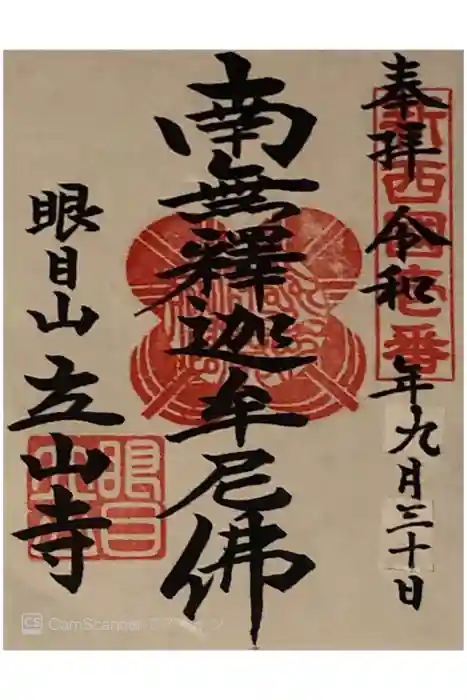 奉拝 令和 年九月三十日
新西國壱番
南無釋迦牟尼佛
眼目山 立山寺
眼目
CS CamScanner